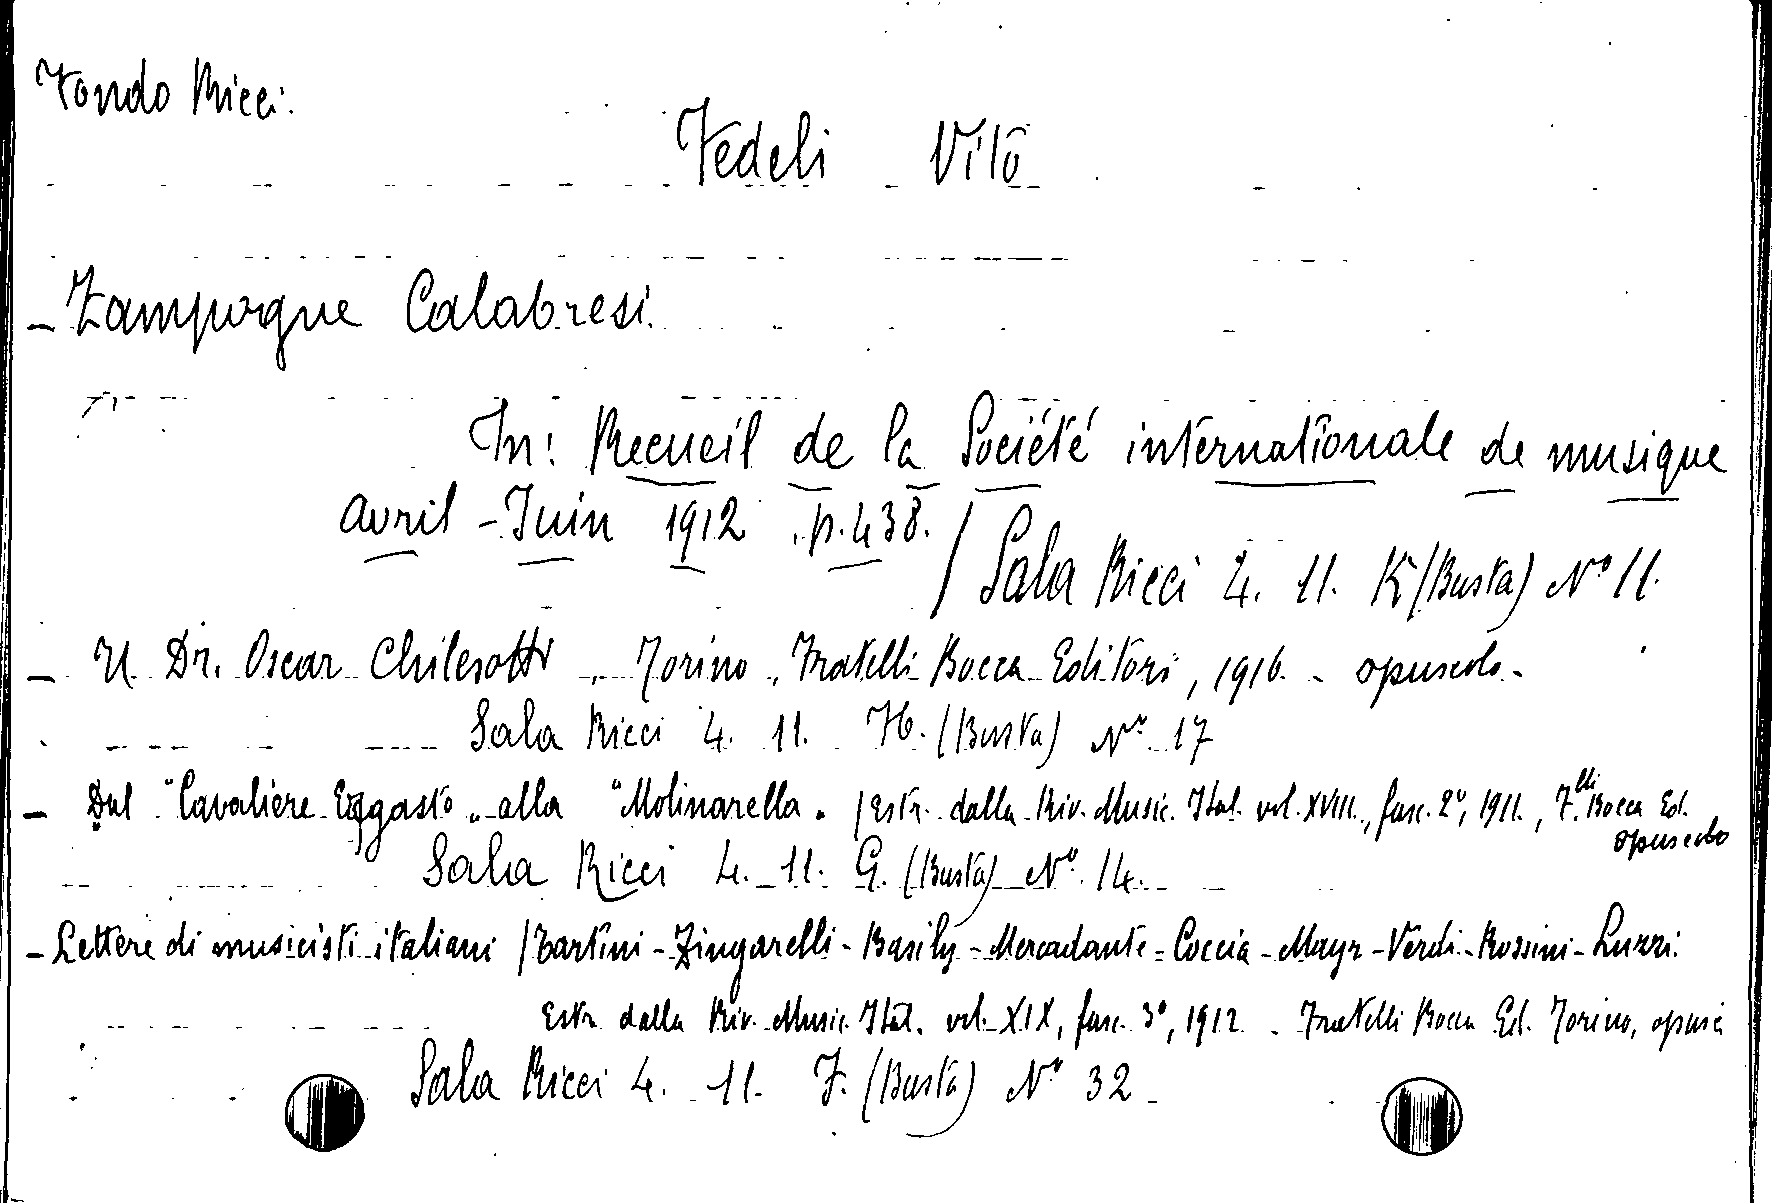 Fondo Ricci.
Fedeli Vito
- Zampogne Calabresi.
In: Recueil de la Société internationale de musique
avril - Juin 1912 . p. 438. / Sala Ricci 4. 11. K (Busta) N° 11.
- Il Dr. Oscar Chilesotti . Torino . Fratelli Bocca Editori, 1916. - opuscolo -
Sala Ricci 4. 11. H. (Busta) N° 17
- Dal "Cavaliere alla "Molinarella" / Estr. dalla Riv. Music. Ital. vol. XVIII., fasc. 2°, 1911., F.lli Bocca Ed.
opuscolo
Sala Ricci 4. 11. G. (Busta) N° 14.
- Lettere di musicisti italiani / Tartini - Zingarelli - Basily - Mercadante - Coccia - Mayr - Verdi - Rossini - Luzzi.
Estr. dalla Riv. Music. Ital. vol. XIX, fasc. 3°, 1912 - Fratelli Bocca Ed. Torino, opusc
Sala Ricci 4. 11. F. (Busta) N° 32 -